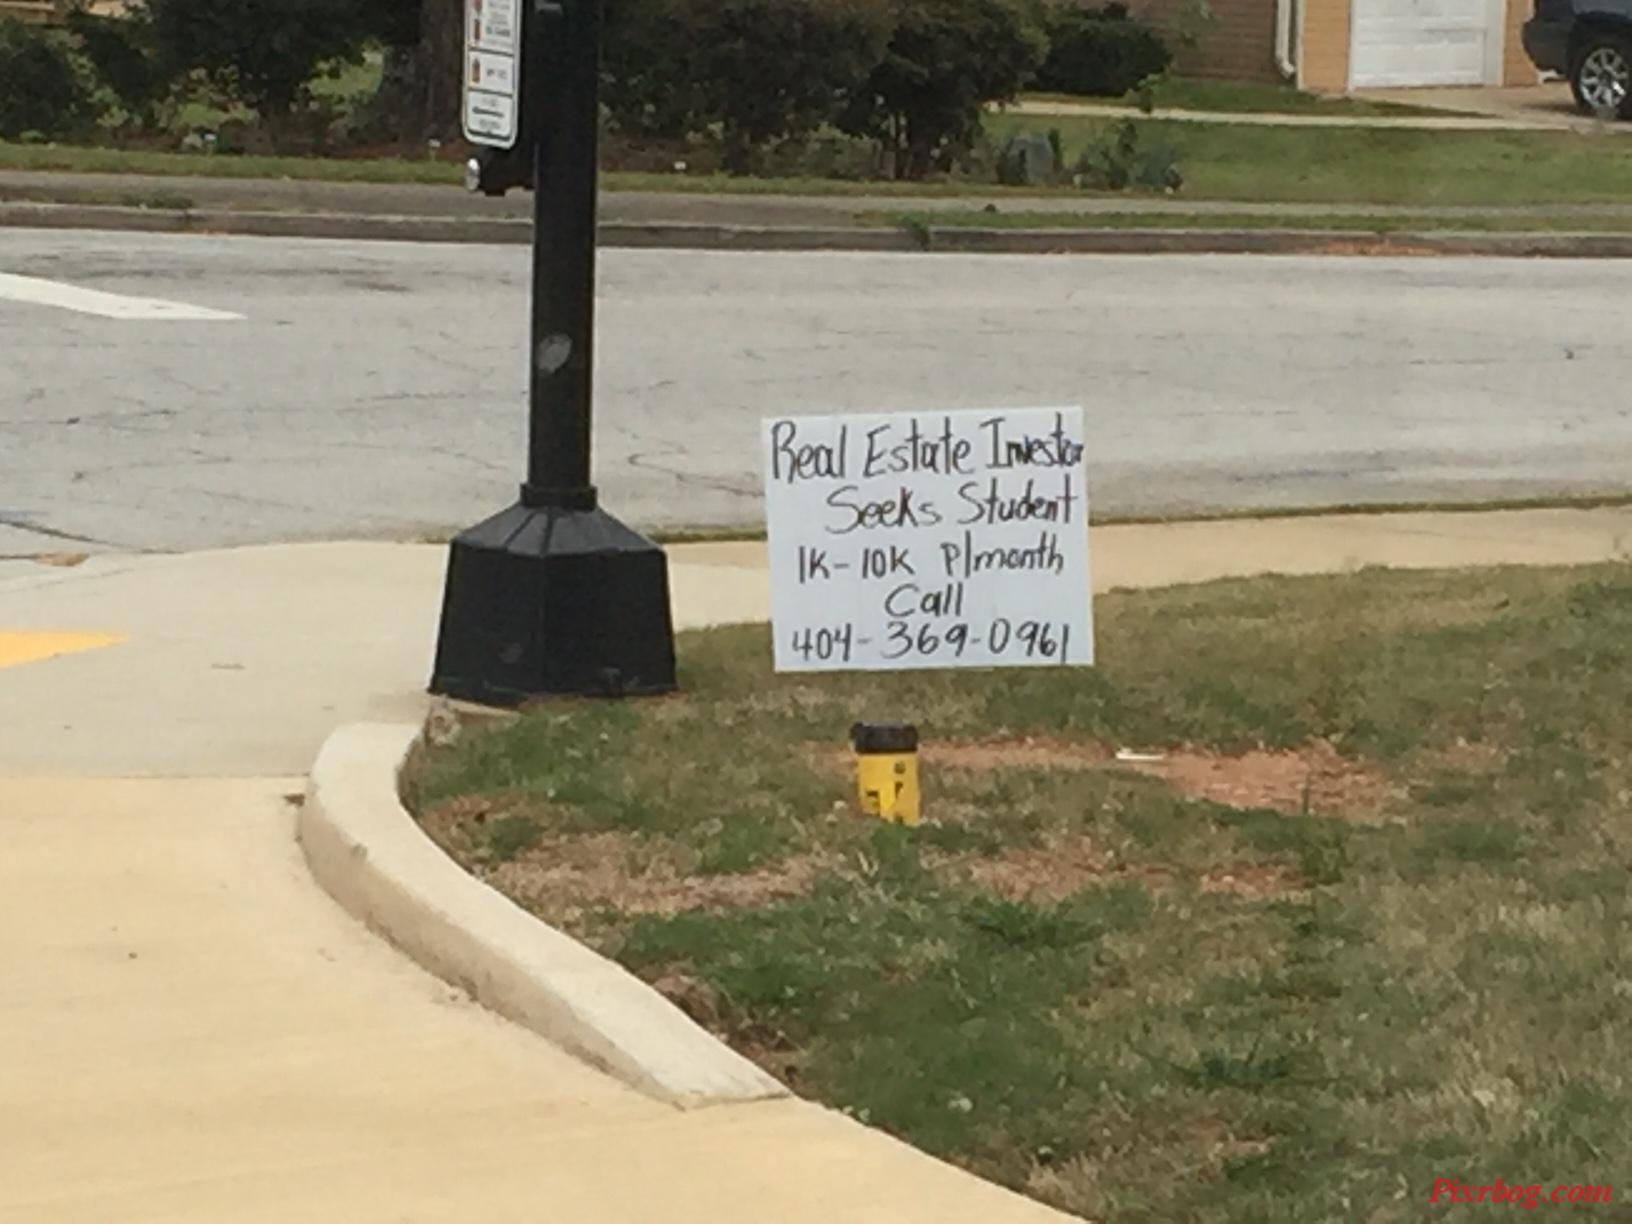 Real Estate Investor
Seeks Student
1K-10K P/month
Call
404-369-0961
Pixrbog.com